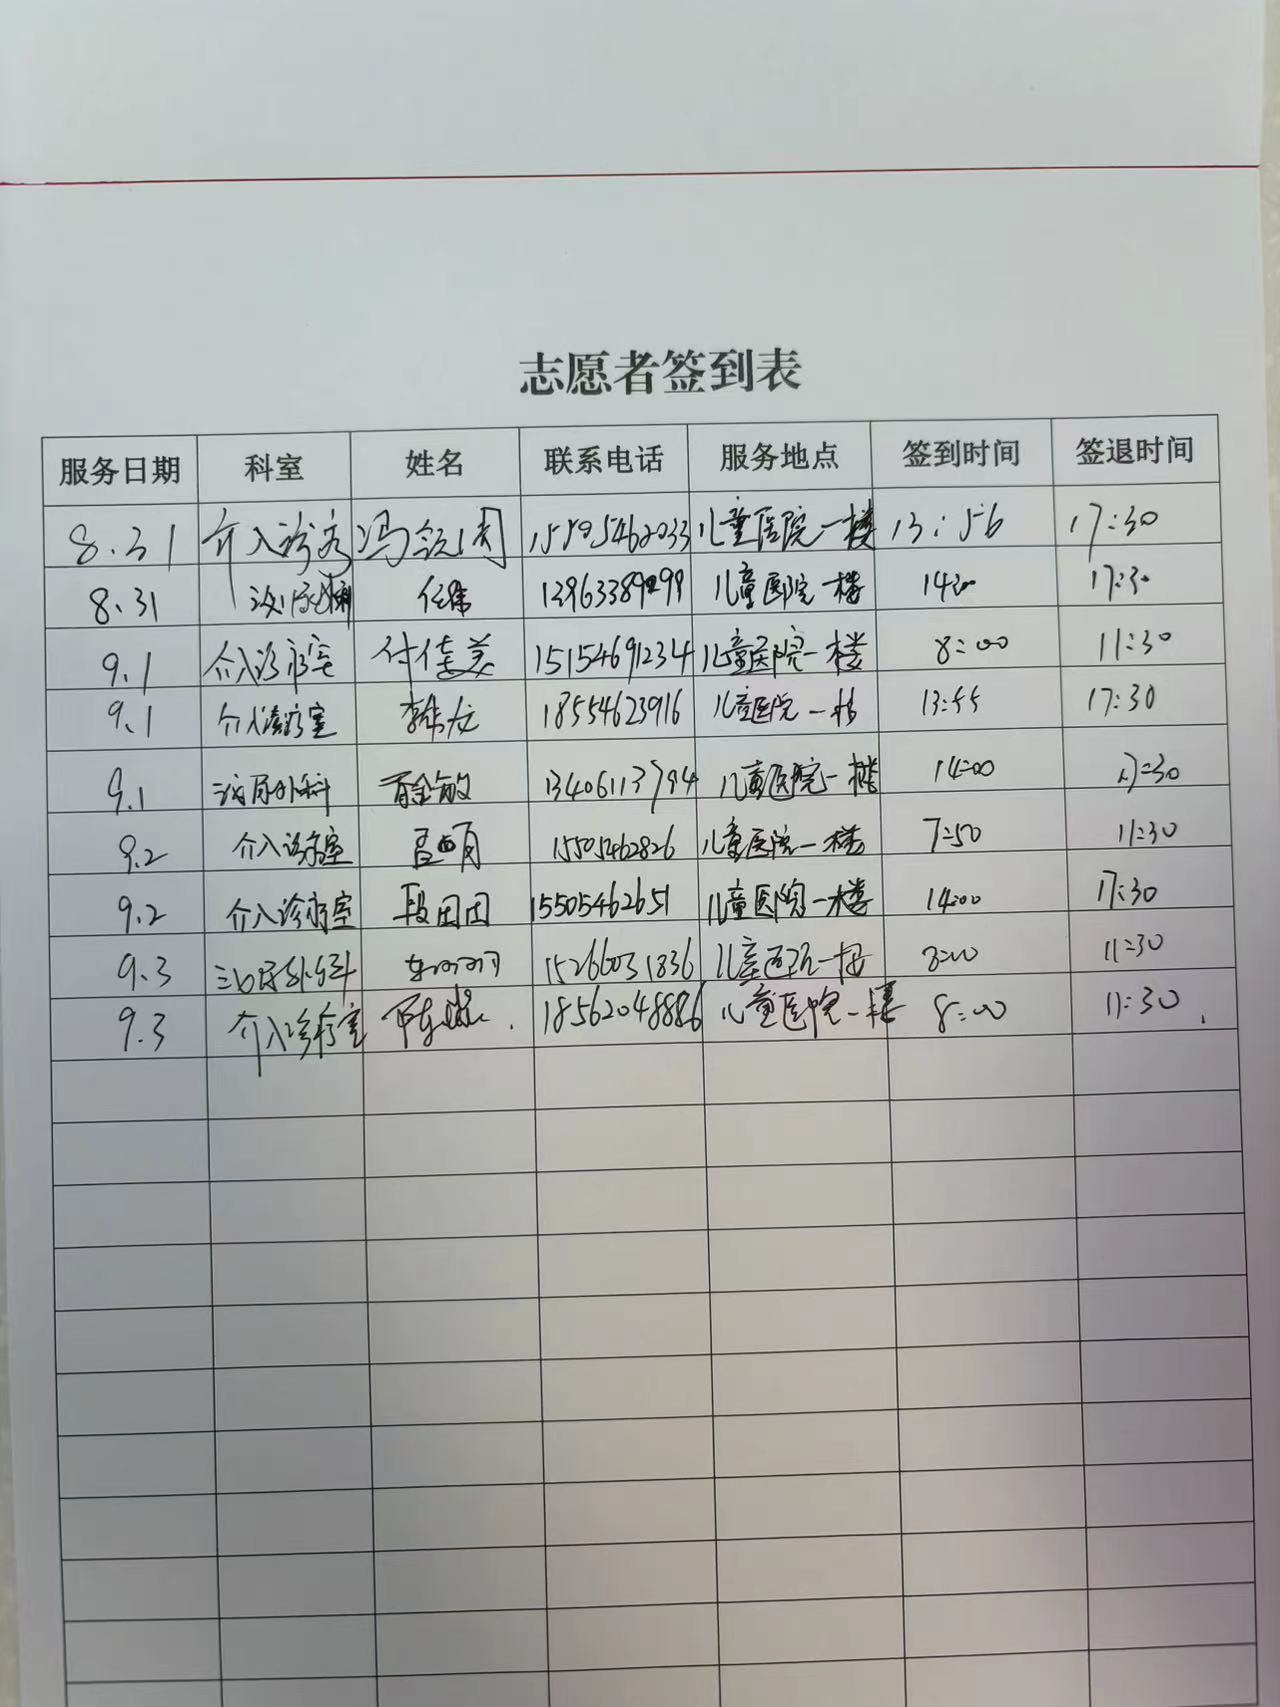 志愿者签到表
服务日期 科室 姓名 联系电话 服务地点 签到时间 签退时间
8.31 介入诊疗 冯 15505462033 儿童医院一楼 13:56 17:30
8.31 任伟 儿童医院一楼 14:00 17:30
9.1 介入诊疗室 付佳美 15154691234 儿童医院一楼 8:00 11:30
9.1 介入诊疗室 李 18554623916 儿童医院一楼 13:55 17:30
9.1 泌尿外科 金敏 13406113794 儿童医院一楼 14:00 17:30
9.2 介入诊疗室 15505462826 儿童医院一楼 7:50 11:30
9.2 介入诊疗室 段团团 15505462651 儿童医院一楼 14:00 17:30
9.3 泌尿外科 15266031836 儿童医院一楼 8:00 11:30
9.3 介入诊疗室 18562048886 儿童医院一楼 8:00 11:30